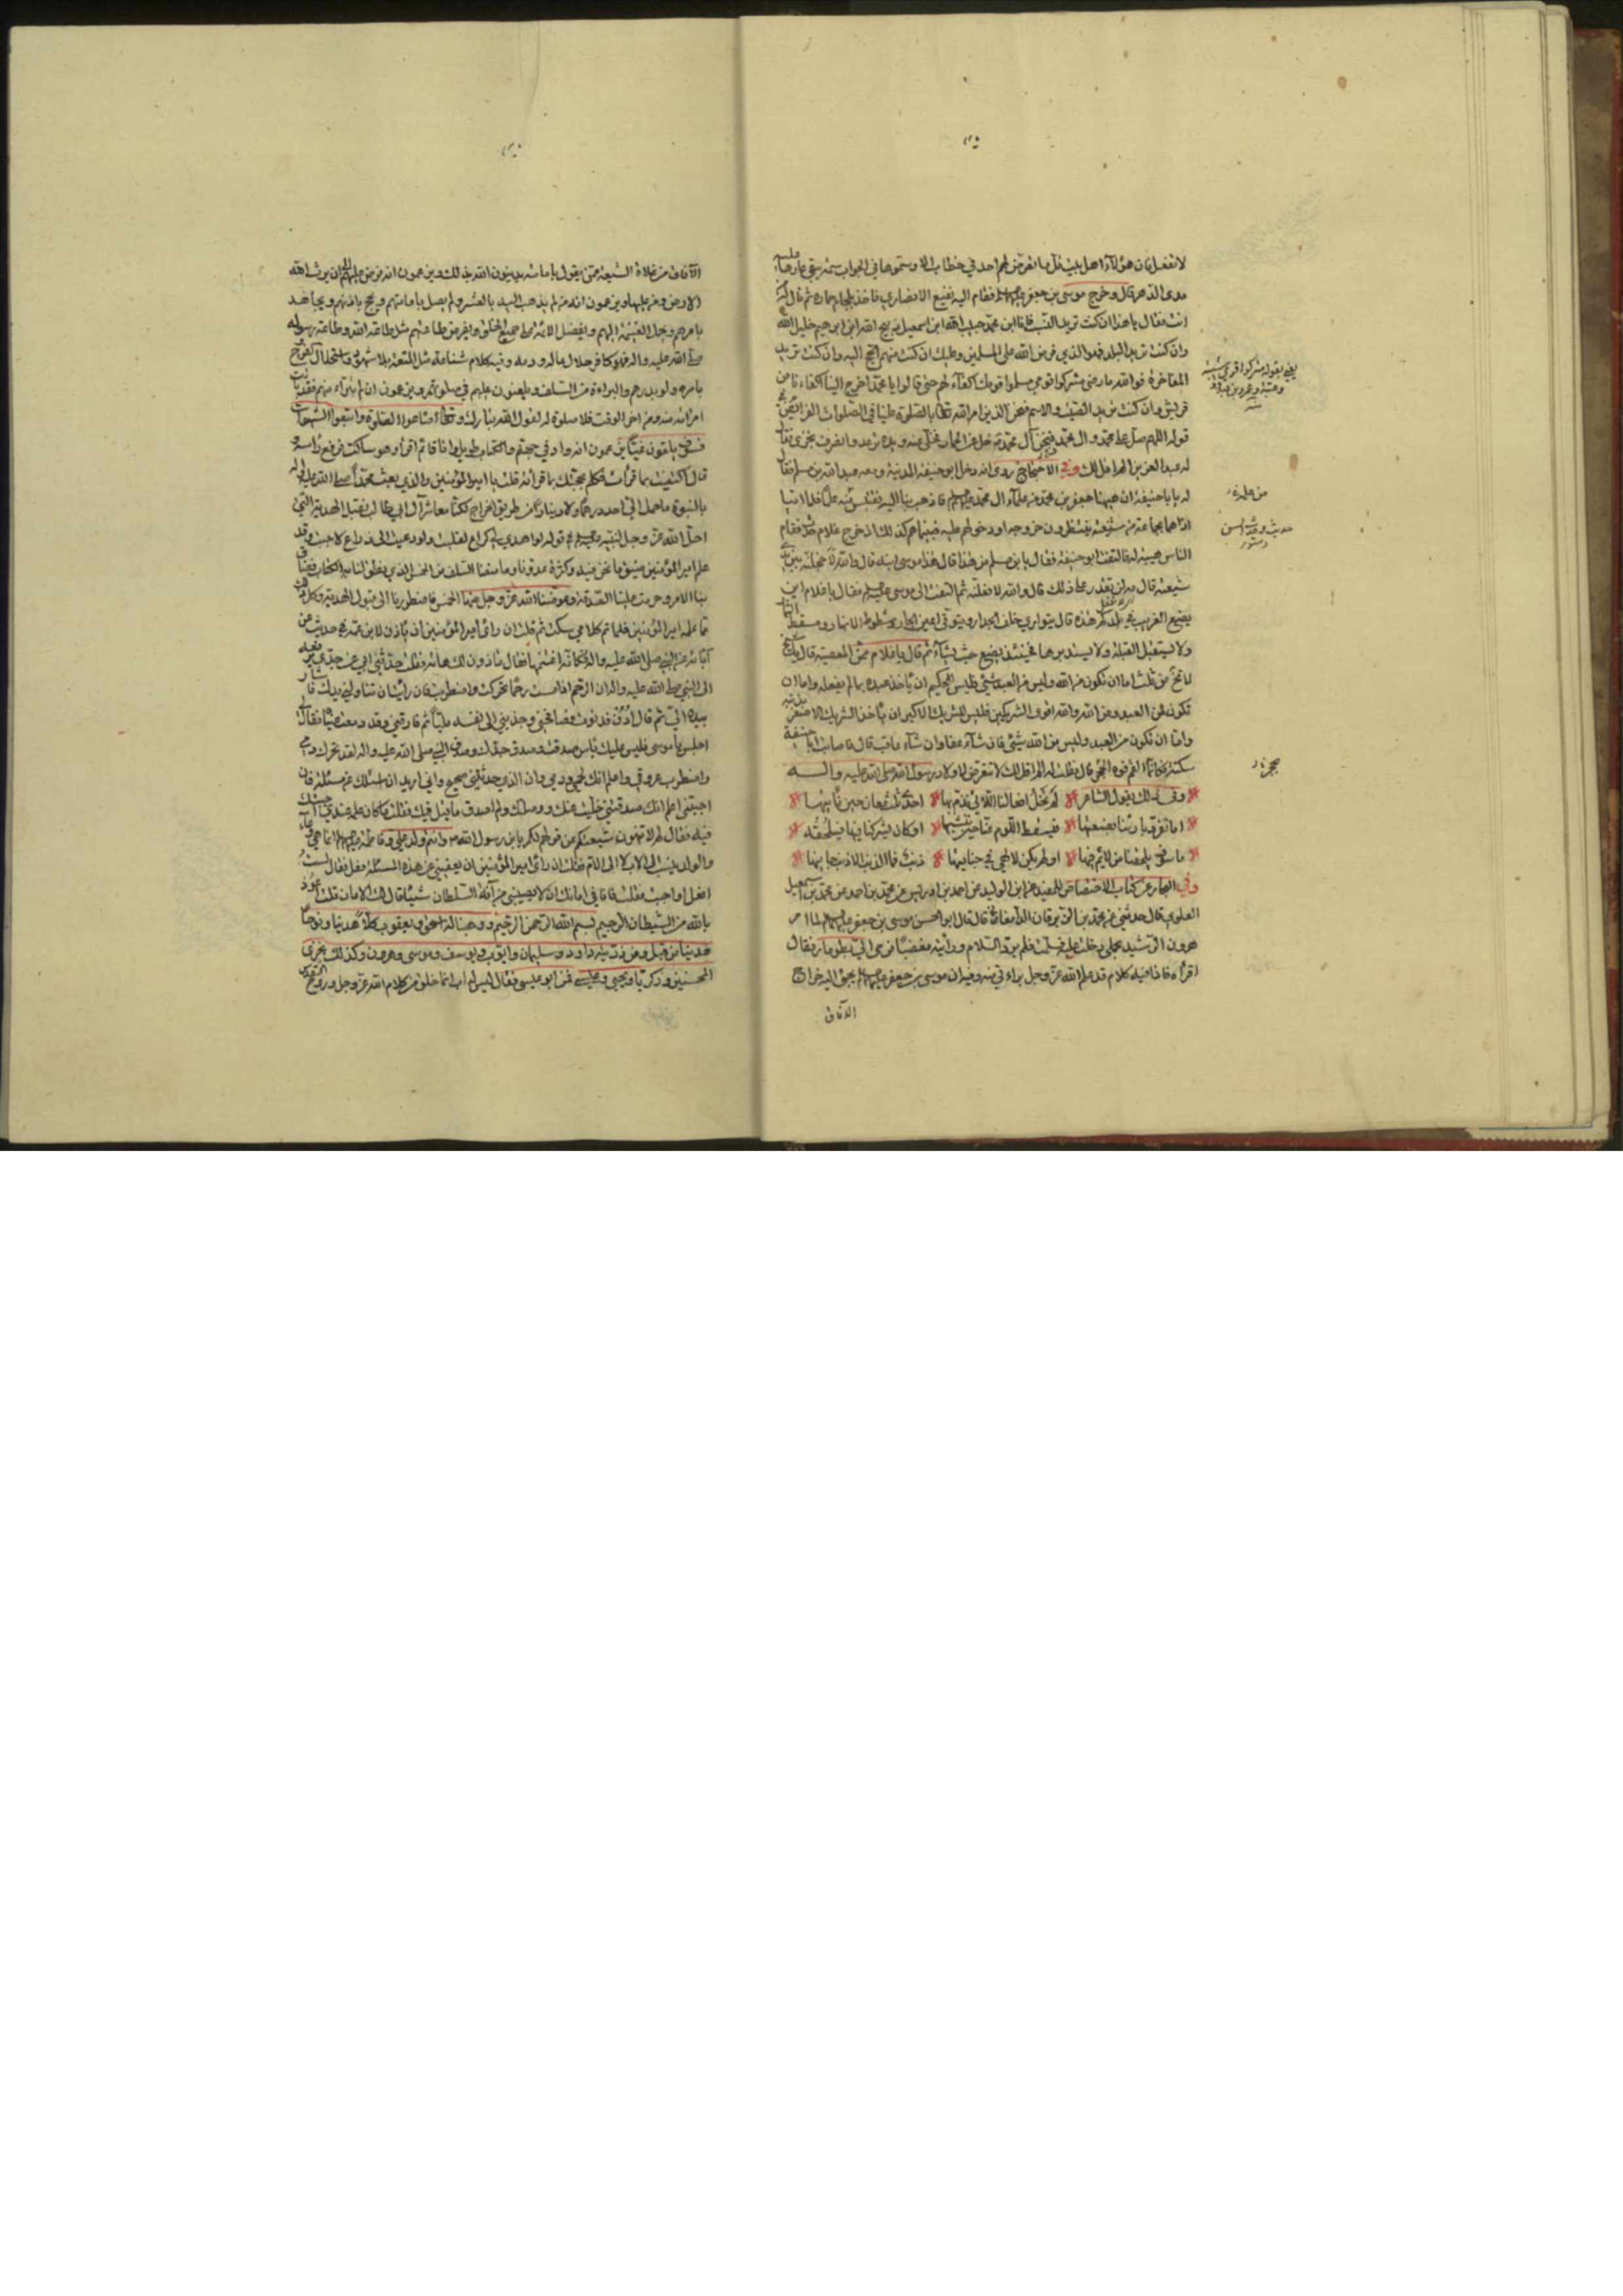 لا تفعل فان هؤلاء اهل بيت قل ما تعرض لهم احد في خطاب الا وسموه في الجواب سمة يبقى عارها عليه
مدى الدهر قال وخرج موسى بن جعفر فقام اليه نفيع الانصاري فاخذ بلجام حماره ثم قال من
انت فقال يا هذا ان كنت تريد النسب فانا ابن محمد حبيب الله ابن اسمعيل ذبيح الله ابن ابرهيم خليل الله
وان كنت تريد البلد فهو الذي فرض الله على المسلمين وعليك ان كنت منهم الحج اليه وان كنت تريد
المفاخرة فوالله ما رضي مشركوا قومي مسلموا قومك اكفاء لهم حتى قالوا يا محمد اخرج الينا اكفاءنا من
قريش وان كنت تريد الصيت والاسم فنحن الذين امر الله تعالى بالصلوة علينا في الصلوات الفرائض في
قوله اللهم صل على محمد وال محمد فنحن آل محمد خل عن الحمار فخلى عنه ويده ترعد وانصرف بخزي فقال
له عبد العزيز الم اقل لك وفي الاحتجاج روي انه دخل ابو حنيفة المدينة ومعه عبد الله بن مسلم فقال
له يا با حنيفة ان هيهنا جعفر بن محمد من علماء ال محمد فاذهب بنا اليه نقتبس منه علما فلما اتيا
اذا هما بجماعة من شيعته ينتظرون خروجه او دخولهم عليه فبينما هم كذلك اذ خرج غلام حدث فقام
الناس هيبة له فالتفت ابو حنيفة فقال يا بن مسلم من هذا قال هذا موسى ابنه قال والله لاخجلنه بين يدي
شيعته قال مه لن تقدر على ذلك قال والله لافعلنه ثم التفت الى موسى فقال يا غلام اين
يضع الغريب في بلدتكم هذه قال يتوارى خلف الجدار ويتوقى اعين الجار وشطوط الانهار ومسقط الثمار
ولا يستقبل القبلة ولا يستدبرها فحينئذ يضع حيث يشاء ثم قال يا غلام ممن المعصية قال يا شيخ
لا تخ من ثلث اما ان تكون من الله وليس من العبد شيء فليس للحكيم ان ياخذ عبده بما لم يفعله واما ان
تكون من العبد ومن الله والله اقوى الشريكين فليس للشريك الاكبر ان ياخذ الشريك الاصغر بذنبه
واما ان تكون من العبد وليس من الله شيء فان شاء عفا وان شاء عاقب قال فاصابت ابا حنيفة
سكتة كانما القم فوه الحجر قال فقلت له الم اقل لك لا تتعرض لاولاد رسول الله صلى الله عليه واله
وفي ذلك يقول الشاعر لم تخل افعالنا اللاتي نذم بها احدى ثلث معان حين ناتيها
اما تفرد بارينا بصنعتها فيسقط اللوم عنا حين ننشيها او كان يشركنا فيها فيلحقه
ما سوف يلحقنا من لائم فيها او لم يكن لالهي في جنايتها ذنب فما الذنب الا ذنب جانيها
وفي البحار عن كتاب الاختصاص للمفيد عن ابن الوليد عن احمد بن ادريس عن محمد بن احمد عن محمد بن اسمعيل
العلوي قال حدثني محمد بن الزبرقان الدامغاني قال قال ابو الحسن موسى بن جعفر لما امر
هرون الرشيد بحملي دخلت عليه فسلمت فلم يرد السلام ورايته مغضبا فرمى الي بطومار فقال
اقراه فاذا فيه كلام قد علم الله عز وجل براءتي منه وفيه ان موسى بن جعفر يجبى اليه خراج
الآفاق
يعني بقوله مشركوا قومي شيبة
حديث
الآفاق من غلاة الشيعة ممن يقول بامامته يدينون الله بذلك ويزعمون انه فرض عليهم الى ان يرث الله
الارض ومن عليها ويزعمون انه من لم يذهب اليه بالعشر ولم يصل بامامتهم ويحج باذنهم ويجاهد
بامرهم ويحمل الغنيمة اليهم ويفضل الائمة على جميع الخلق ويفرض طاعتهم مثل طاعة الله وطاعة رسوله
صلى الله عليه واله فهو كافر حلال ماله ودمه وفيه كلام شناعة مثل المتعة بلا شهود واستحلال الفروج
بامره ولو بدرهم والبراءة من السلف ويلعنون عليهم في صلوتهم ويزعمون ان لم يتبرا منهم فقد بانت
امراته منه ومن اخر الوقت فلا صلوة له لقول الله تبارك وتعالى اضاعوا الصلوة واتبعوا الشهوات
فسوف يلقون غيا يزعمون انه واد في جهنم والكتاب طويل وانا قائم اقرا وهو ساكت فرفع راسه و
قال اكتفيت بما قرات فكلم بحجتك بما قراته قلت يا امير المؤمنين والذي بعث محمدا صلى الله عليه واله
بالنبوة ما حمل الي احد درهما ولا دينارا من طريق الخراج لكنا معاشر آل ابي طالب نقبل الهدية التي
احل الله عز وجل لنبيه في قوله لو اهدي لي كراع لقبلت ولو دعيت الى ذراع لاجبت وقد
علم امير المؤمنين ضيق ما نحن فيه وكثرة عدونا وما منعنا السلف من الخمس الذي نطق لنا به الكتاب فضاق
بنا الامر وحرمت علينا الصدقة وعوضنا الله عز وجل عنها الخمس فاضطررنا الى قبول الهدية وكل ذلك
مما علمه امير المؤمنين فلما تم كلامي سكت ثم قلت ان راى امير المؤمنين ان ياذن لابن عمه في حديث عن
آبائه عن النبي صلى الله عليه واله فكانه اغتنمها فقال ماذون لك هاته فقلت حدثني ابي عن جدي يرفعه
الى النبي صلى الله عليه واله ان الرحم اذا مست رحما تحركت واضطربت فان رايت ان تناولني يدك فاشار
بيده الي ثم قال ادن فدنوت فصافحني وجذبني الى نفسه مليا ثم فارقني وقد دمعت عيناه فقال لي
اجلس يا موسى فليس عليك باس صدقت وصدق جدك وصدق النبي صلى الله عليه واله لقد تحرك دمي
واضطربت عروقي واعلم انك لحمي ودمي وان الذي حدثتني صحيح واني اريد ان اسئلك عن مسئلة فان
اجبتني اعلم انك صدقتني خليت عنك ووصلتك ولم اصدق ما قيل فيك فقلت ما كان علمه عندي اجبتك
فيه فقال لم لا تنهون شيعتكم عن قولهم لكم يا بن رسول الله وانتم ولد علي وفاطمة انما هي وعاء
والولد ينسب الى الاب لا الى الام فقلت ان راى امير المؤمنين ان يعفيني عن هذه المسئلة فعل فقال لست
افعل او اجبت فقلت فانا في امانك ان لا يصيبني من آفة السلطان شيئا قال لك الامان قلت اعوذ
بالله من الشيطان الرجيم بسم الله الرحمن الرحيم ووهبنا له اسحق ويعقوب كلا هدينا ونوحا
هدينا من قبل ومن ذريته داود وسليمان وايوب ويوسف وموسى وهرون وكذلك نجزي
المحسنين وزكريا ويحيى وعيسى فمن ابو عيسى فقال ليس له اب انما خلق من كلام الله عز وجل وروح القدس